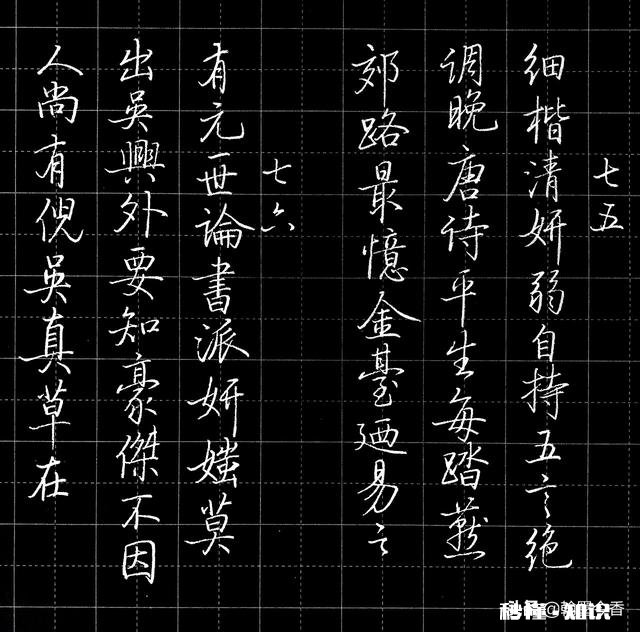 七五
细楷清妍弱自持五言绝
调晚唐诗平生每踏燕
郊路最憶金臺廼易之
七六
有元一世論書派妍媸莫
出吳興外要知豪傑不因
人尚有倪吳真草在
秒懂·知识